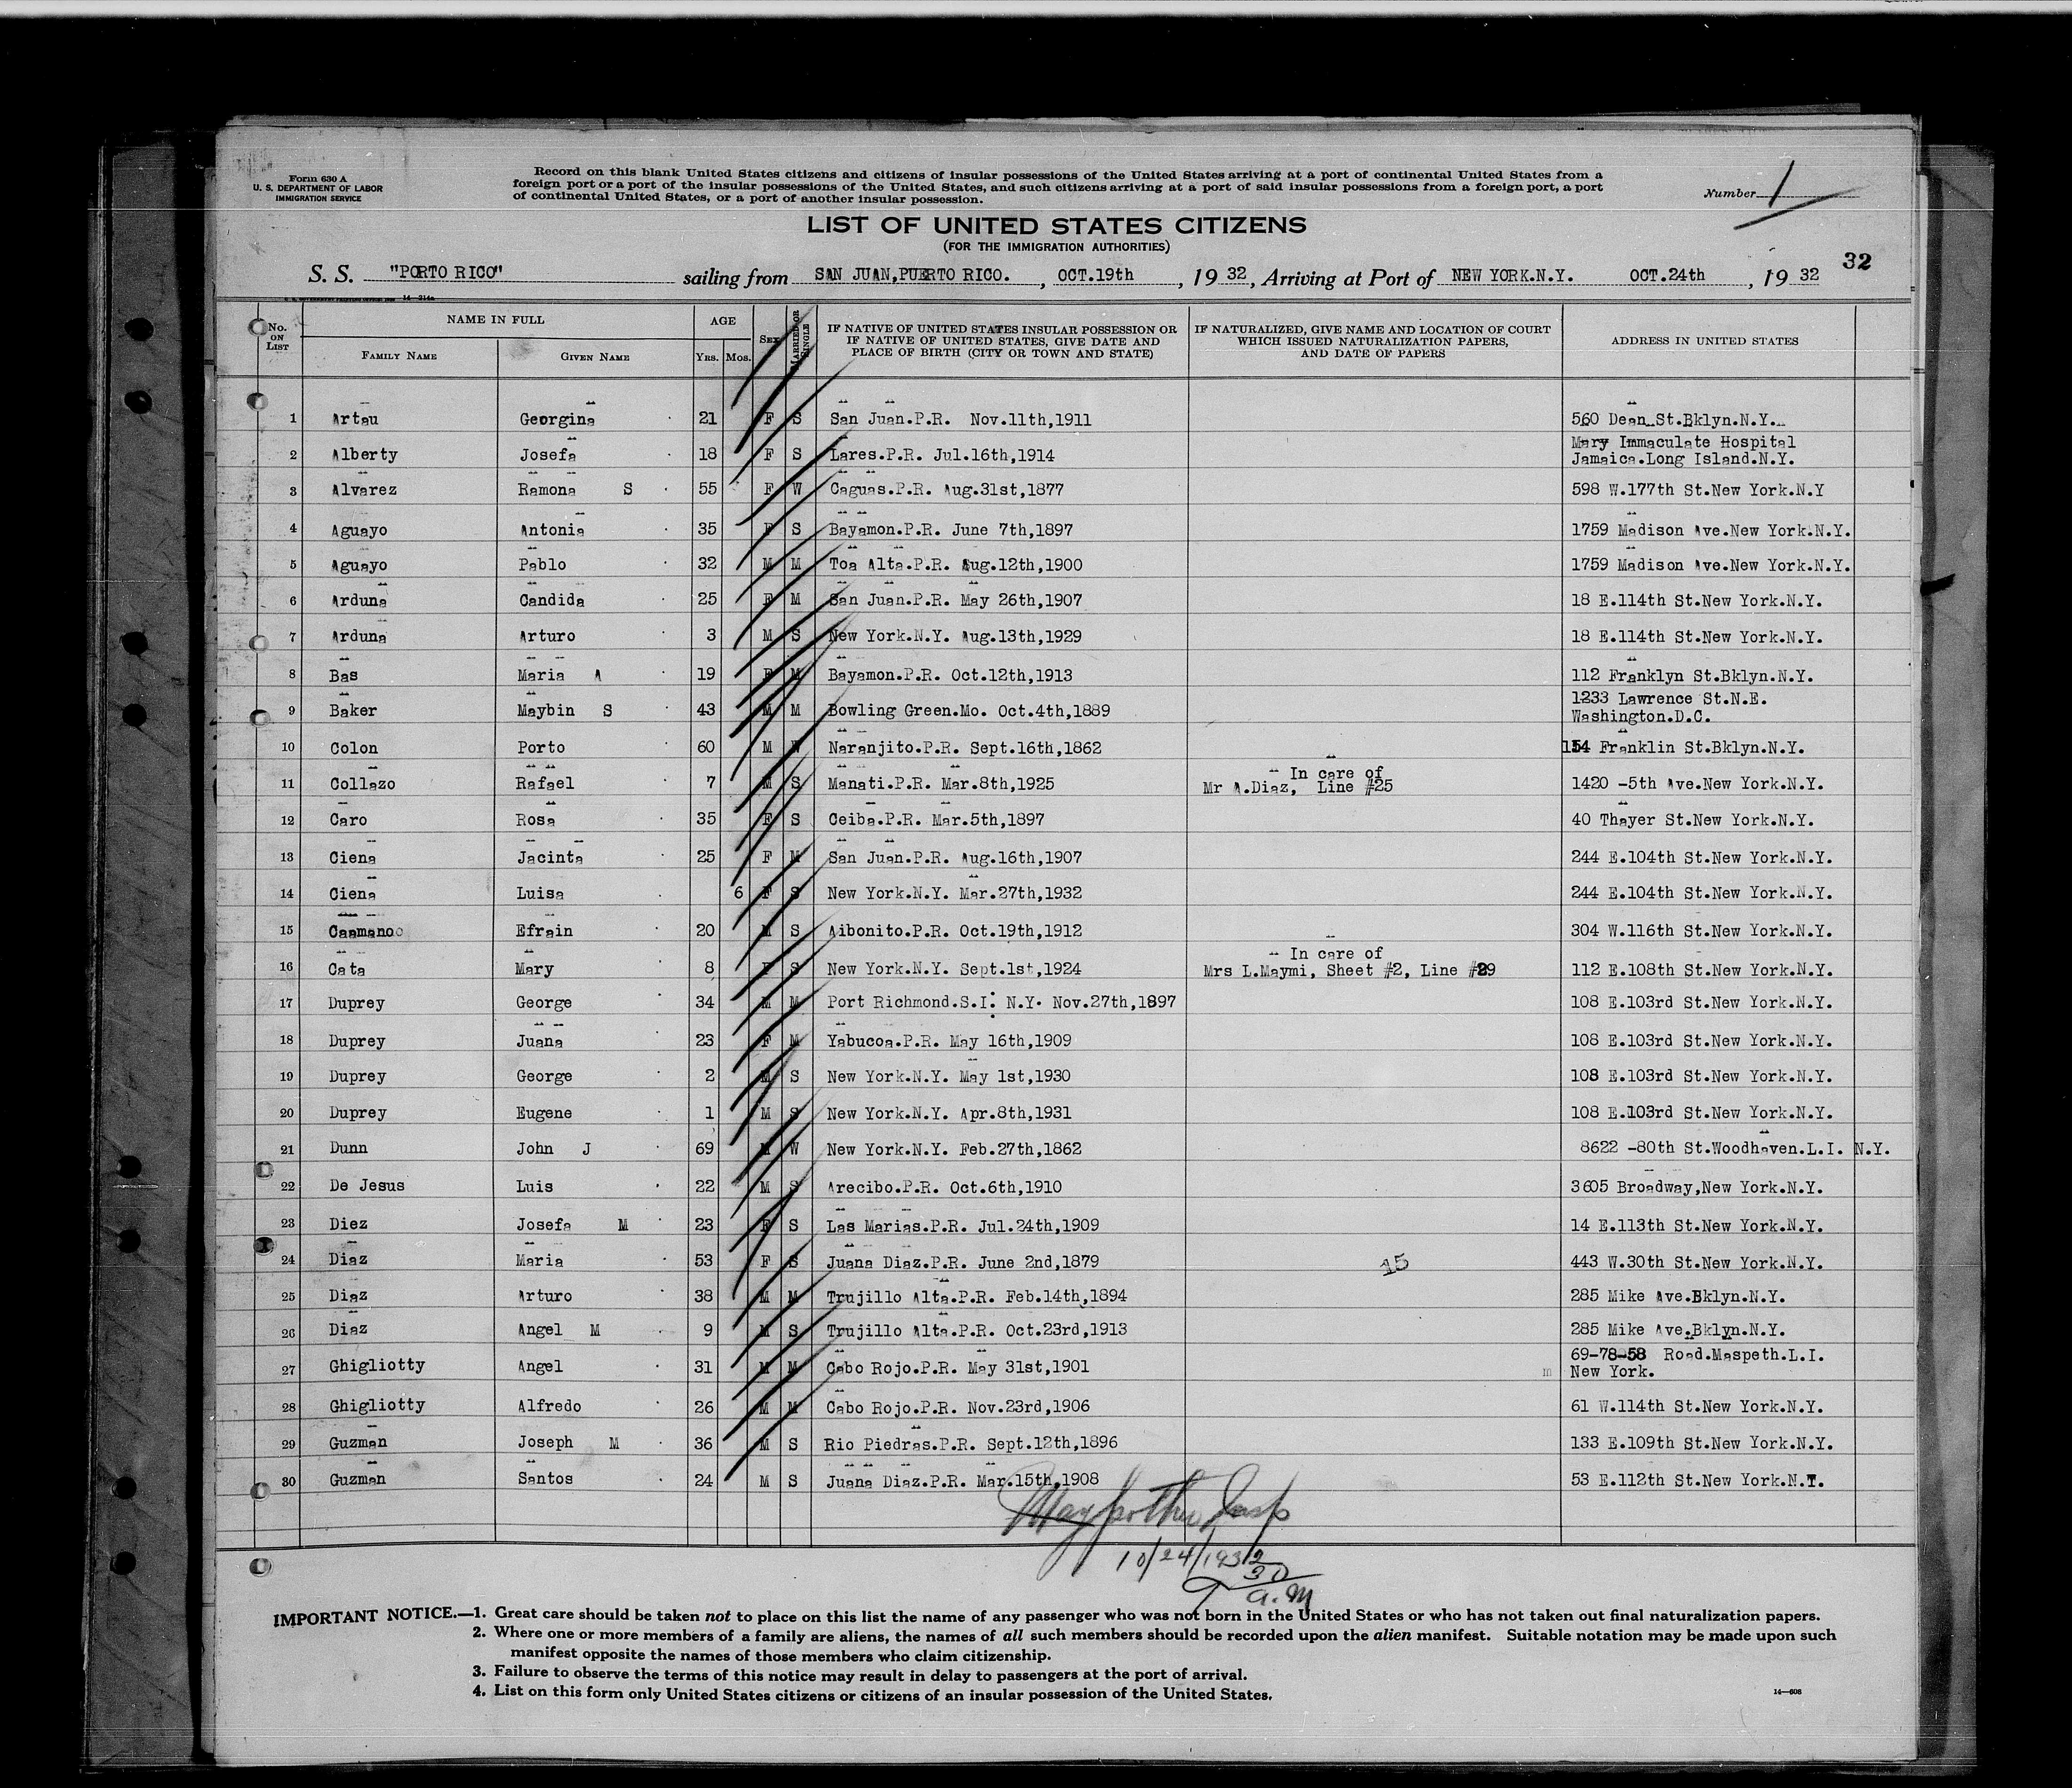 Form 630 A
U. S. DEPARTMENT OF LABOR
IMMIGRATION SERVICE
Record on this blank United States citizens and citizens of insular possessions of the United States arriving at a port of continental United States from a
foreign port or a port of the insular possessions of the United States, and such citizens arriving at a port of said insular possessions from a foreign port, a port
of continental United States, or a port of another insular possession.
Number 1
LIST OF UNITED STATES CITIZENS
(FOR THE IMMIGRATION AUTHORITIES)
32
S. S. "PORTO RICO" sailing from SAN JUAN,PUERTO RICO. , OCT.19th , 19 32, Arriving at Port of NEW YORK.N.Y. OCT.24th , 19 32
14—214a
No. ON LIST NAME IN FULL AGE SEX MARRIED OR SINGLE IF NATIVE OF UNITED STATES INSULAR POSSESSION OR IF NATIVE OF UNITED STATES, GIVE DATE AND PLACE OF BIRTH (CITY OR TOWN AND STATE) IF NATURALIZED, GIVE NAME AND LOCATION OF COURT WHICH ISSUED NATURALIZATION PAPERS, AND DATE OF PAPERS ADDRESS IN UNITED STATES
FAMILY NAME GIVEN NAME YRS. MOS.
1 Artau Georgina 21 F S San Juan.P.R. Nov.11th,1911 560 Dean St.Bklyn.N.Y.
2 Alberty Josefa 18 F S Lares.P.R. Jul.16th,1914 Mary Immaculate Hospital
Jamaica.Long Island.N.Y.
3 Alvarez Ramona S 55 F W Caguas.P.R. Aug.31st,1877 598 W.177th St.New York.N.Y
4 Aguayo Antonia 35 F S Bayamon.P.R. June 7th,1897 1759 Madison Ave.New York.N.Y.
5 Aguayo Pablo 32 M M Toa Alta.P.R. Aug.12th,1900 1759 Madison Ave.New York.N.Y.
6 Arduna Candida 25 F M San Juan.P.R. May 26th,1907 18 E.114th St.New York.N.Y.
7 Arduna Arturo 3 M S New York.N.Y. Aug.13th,1929 18 E.114th St.New York.N.Y.
8 Bas Maria A 19 F M Bayamon.P.R. Oct.12th,1913 112 Franklyn St.Bklyn.N.Y.
9 Baker Maybin S 43 M M Bowling Green.Mo. Oct.4th,1889 1233 Lawrence St.N.E.
Washington.D.C.
10 Colon Porto 60 M W Naranjito.P.R. Sept.16th,1862 154 Franklin St.Bklyn.N.Y.
11 Collazo Rafael 7 M S Manati.P.R. Mar.8th,1925 In care of
Mr A.Diaz, Line #25 1420 -5th Ave.New York.N.Y.
12 Caro Rosa 35 F S Ceiba.P.R. Mar.5th,1897 40 Thayer St.New York.N.Y.
13 Ciena Jacinta 25 F M San Juan.P.R. Aug.16th,1907 244 E.104th St.New York.N.Y.
14 Ciena Luisa 6 F S New York.N.Y. Mar.27th,1932 244 E.104th St.New York.N.Y.
15 Caamano Efrain 20 M S Aibonito.P.R. Oct.19th,1912 304 W.116th St.New York.N.Y.
16 Cata Mary 8 F S New York.N.Y. Sept.1st,1924 In care of
Mrs L.Maymi, Sheet #2, Line #29 112 E.108th St.New York.N.Y.
17 Duprey George 34 M M Port Richmond.S.I. N.Y. Nov.27th,1897 108 E.103rd St.New York.N.Y.
18 Duprey Juana 23 F M Yabucoa.P.R. May 16th,1909 108 E.103rd St.New York.N.Y.
19 Duprey George 2 M S New York.N.Y. May 1st,1930 108 E.103rd St.New York.N.Y.
20 Duprey Eugene 1 M S New York.N.Y. Apr.8th,1931 108 E.103rd St.New York.N.Y.
21 Dunn John J 69 M W New York.N.Y. Feb.27th,1862 8622 -80th St.Woodhaven.L.I. N.Y.
22 De Jesus Luis 22 M S Arecibo.P.R. Oct.6th,1910 3605 Broadway,New York.N.Y.
23 Diez Josefa M 23 F S Las Marias.P.R. Jul.24th,1909 14 E.113th St.New York.N.Y.
24 Diaz Maria 53 F S Juana Diaz.P.R. June 2nd,1879 15 443 W.30th St.New York.N.Y.
25 Diaz Arturo 38 M M Trujillo Alta.P.R. Feb.14th,1894 285 Mike Ave.Bklyn.N.Y.
26 Diaz Angel M 9 M S Trujillo Alta.P.R. Oct.23rd,1913 285 Mike Ave.Bklyn.N.Y.
27 Ghigliotty Angel 31 M M Cabo Rojo.P.R. May 31st,1901 69-78-58 Road.Maspeth.L.I.
New York.
28 Ghigliotty Alfredo 26 M M Cabo Rojo.P.R. Nov.23rd,1906 61 W.114th St.New York.N.Y.
29 Guzman Joseph M 36 M S Rio Piedras.P.R. Sept.12th,1896 133 E.109th St.New York.N.Y.
30 Guzman Santos 24 M S Juana Diaz.P.R. Mar.15th,1908 53 E.112th St.New York.N.Y.
10/24/1932
9 30
a.m
IMPORTANT NOTICE.—1. Great care should be taken not to place on this list the name of any passenger who was not born in the United States or who has not taken out final naturalization papers.
2. Where one or more members of a family are aliens, the names of all such members should be recorded upon the alien manifest. Suitable notation may be made upon such
manifest opposite the names of those members who claim citizenship.
3. Failure to observe the terms of this notice may result in delay to passengers at the port of arrival.
4. List on this form only United States citizens or citizens of an insular possession of the United States.
14—608